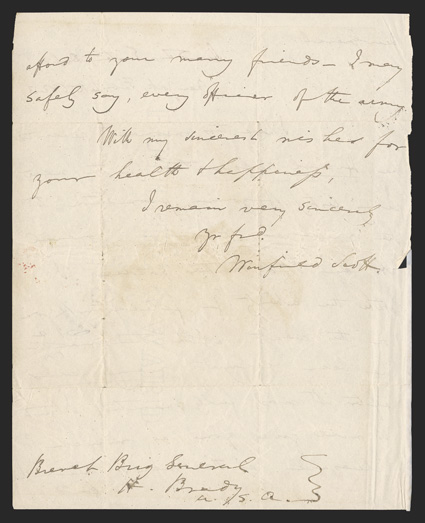 afford to your many friends — I may
safely say, every officer of the army.
With my sincerest wishes for
your health & happiness,
I remain very sincerely
Yr frd.
Winfield Scott.
Brevet Brig General
H. Brady
U. S. A.